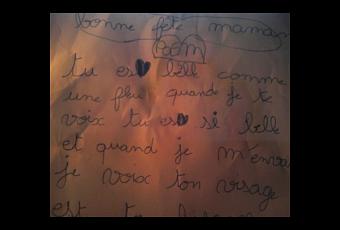 bonne fête maman
Poèm
tu es bèll comme
une fleur quand je te
voix tu es si bèll
et quand je m'envai
je voix ton visage
est tu